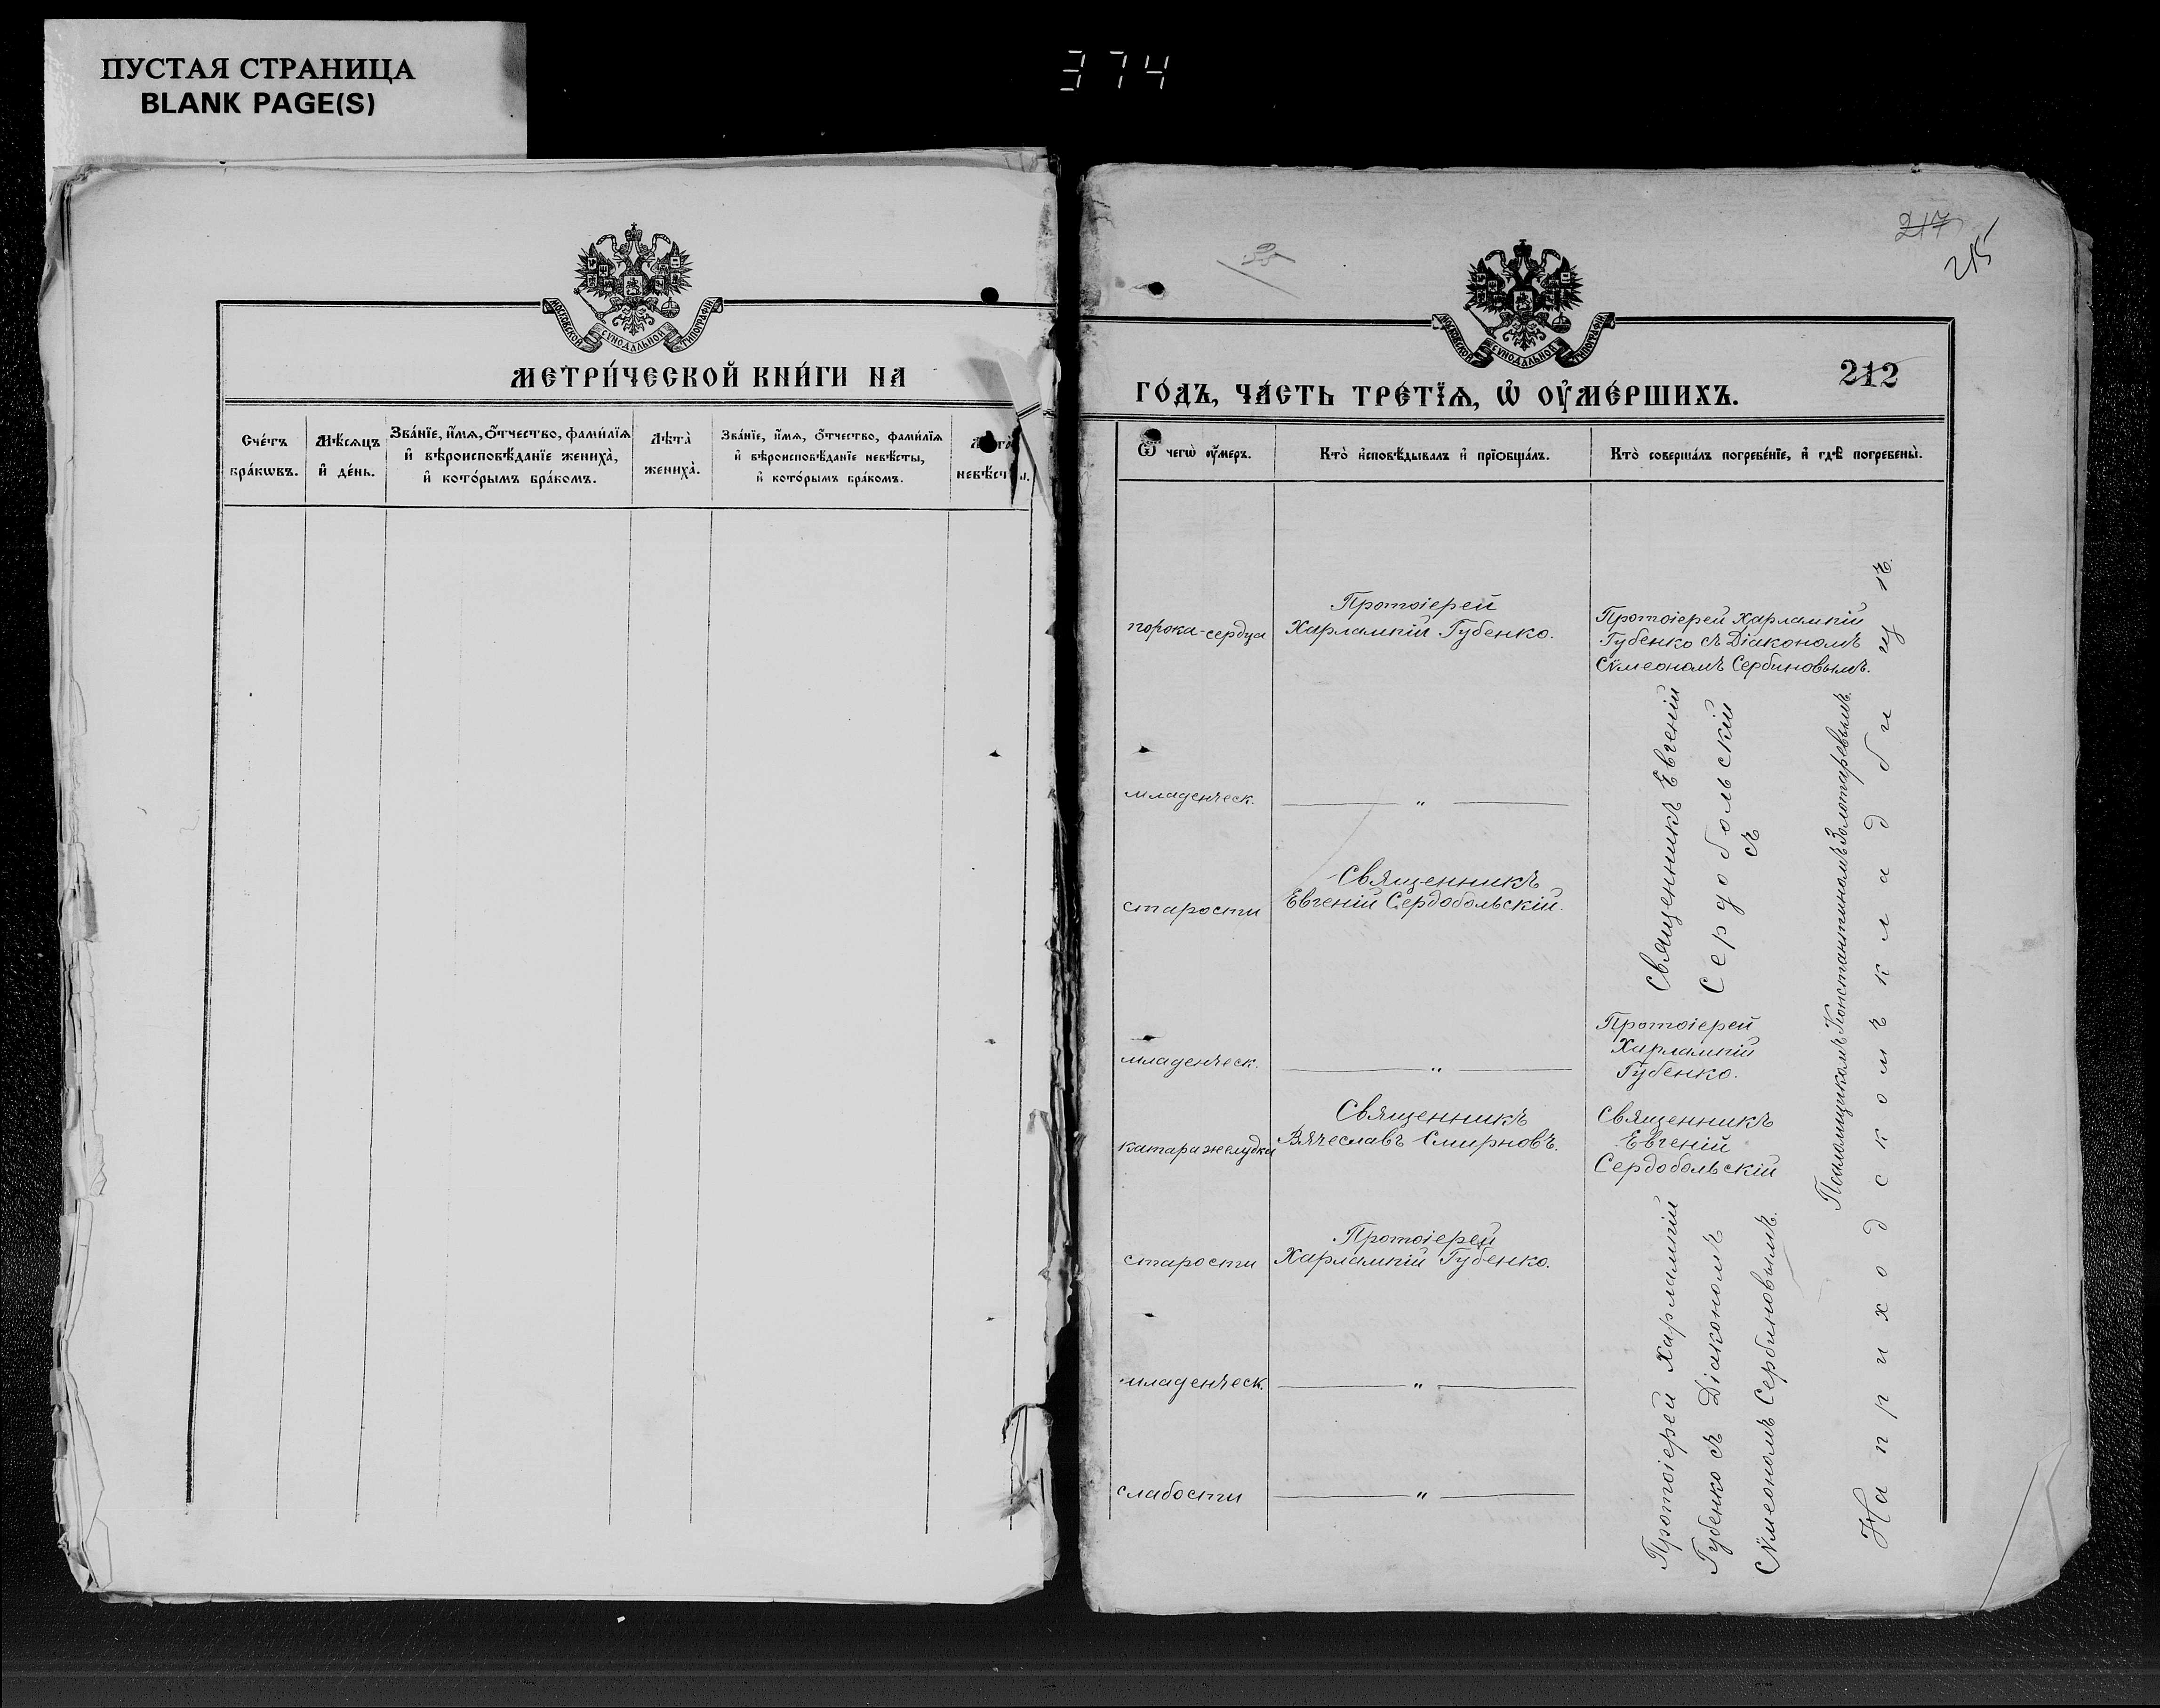 ПУСТАЯ СТРАНИЦА
BLANK PAGE(S)
374
МОСКОВСКОЙ СѴНОДАЛЬНОЙ ТИПОГРАФІИ
МЕТРИ́ЧЕСКОЙ КНИ́ГИ НА
Сче́тъ бра́кѡвъ.
Мѣ́сѧцъ и҆ де́нь.
Зва́нїе, и҆́мѧ, ѻ҆́тчество, фами́лїѧ и҆ вѣроисповѣ́данїе жениха̀, и҆ кото́рымъ бра́комъ.
Лѣта̀ жениха̀.
Зва́нїе, и҆́мѧ, ѻ҆́тчество, фами́лїѧ и҆ вѣроисповѣ́данїе невѣ́сты, и҆ кото́рымъ бра́комъ.
невѣ́сты.
217
215
МОСКОВСКОЙ СѴНОДАЛЬНОЙ ТИПОГРАФІИ
212
ГО́ДЪ, ЧА́СТЬ ТРЕ́ТЇѦ, Ѡ҆ ОУ҆МЕ́РШИХЪ.
Ѿ чегѡ̀ оу҆́меръ.
Кто̀ и҆сповѣ́дывалъ и҆ прїѻбща́лъ.
Кто̀ соверша́лъ погребе́нїе, и҆ гдѣ̀ погребены̀.
порока-сердца
Протоіерей
Харлампій Губенко.
Протоіерей Харлампій
Губенко съ Діакономъ
Сѵмеономъ Сербиновымъ.
младенческ.
"
старости
Священникъ
Евгеній Сердобольскій.
Священникъ Евгеній
Сердобольскій
съ
младенческ.
"
Протоіерей
Харлампій
Губенко.
катара желудка
Священникъ
Вячеславъ Смирновъ.
Священникъ
Евгеній
Сердобольскій
старости
Протоіерей
Харлампій Губенко.
младенческ.
"
слабости
"
Протоіерей Харлампій
Губенко съ Діакономъ
Сѵмеономъ Сербиновымъ.
Псаломщикомъ Константиномъ Золотаревымъ.
На приходскомъ кладбищѣ.